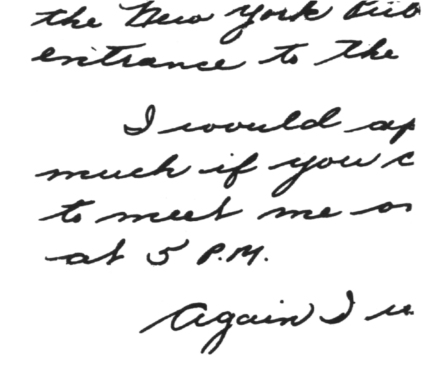 the New York Pub
entrance to the
I would ap
much if you c
to meet me on
at 5 P.M.
Again I